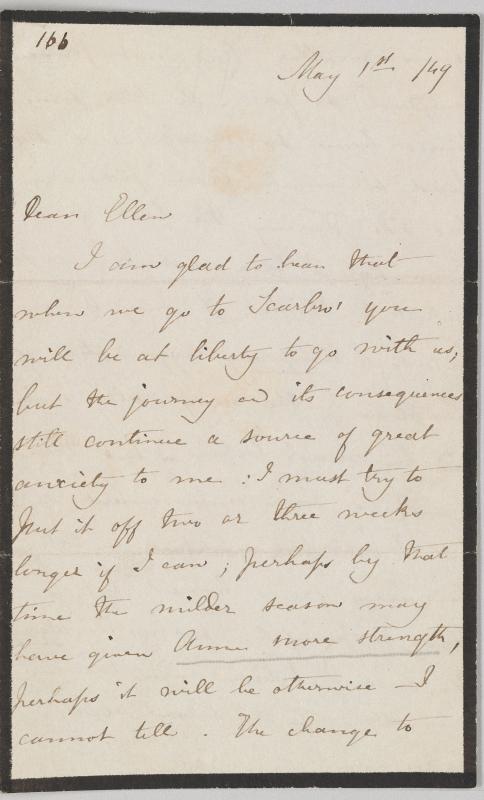 166
May 1st /49
Dear Ellen
I am glad to hear that
when we go to Scarbro' you
will be at liberty to go with us;
but the journey and its consequences
still continue a source of great
anxiety to me : I must try to
put it off two or three weeks
longer if I can ; perhaps by that
time the milder season may
have given Anne more strength,
perhaps it will be otherwise - I
cannot tell . The change to